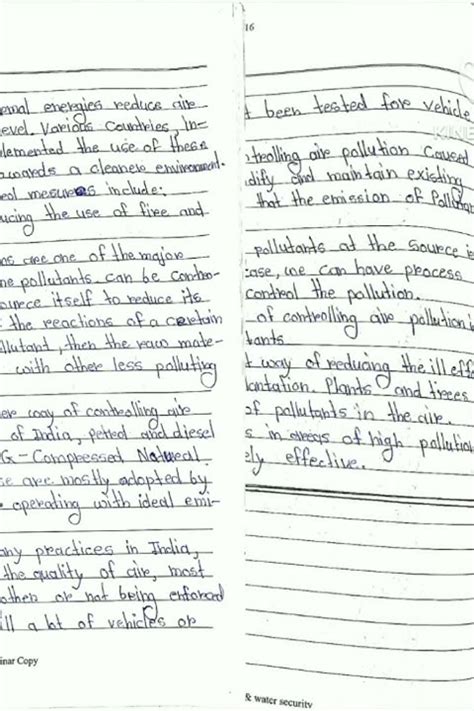 ermal energies reduce aire
evel. Various Countries In-
lemented the use of these
owards a cleanere environment.
rol mesures include:
ucing the use of fire and
ns are one of the major
ne pollutants can be contro-
ource itself to reduce its
f the reactions of a certain
llutant, then the raw mate-
with other less polluting
ere way of controlling aire
of India, petrol and diesel
G - Compressed Natural
se are mostly adopted by
operating with ideal emi-
any practices in India,
the quality of aire, most
other or not being enforced
ill a lot of vehicles or
inar Copy
16
t been tested fore vehicle
trolling aire pollution
dify and maintain existing
that the emission of Pollutan
pollutants at the Source is
ase, we can have process
control the pollution.
of controlling aire pollution i
tants
t way of reducing the ill eff
lantation. Plants and trees
of pollutants in the aire.
s in areas of high pollution
ely effective.
& water security